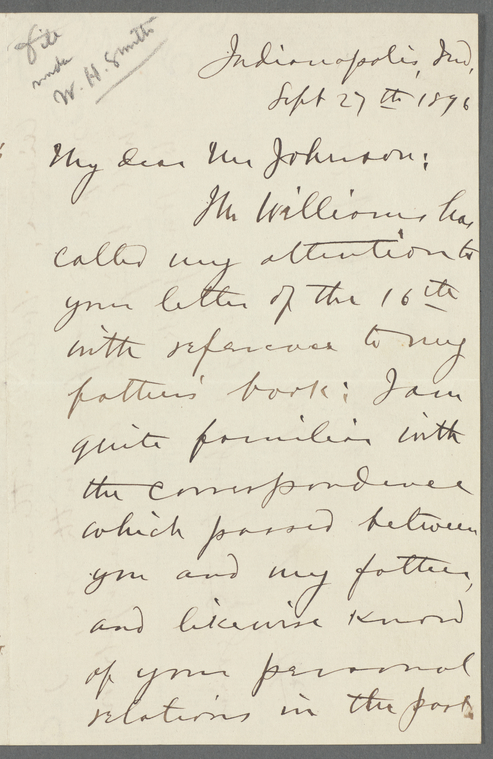 File
under
W. H. Smith
Indianapolis, Ind,
Sept 27th 1896
My dear Mr Johnson:
Mr Williams has
called my attention to
your letter of the 16th
with reference to my
father's book: I am
quite familiar with
the correspondence
which passed between
you and my father,
and likewise know
of your personal
relations in the past.